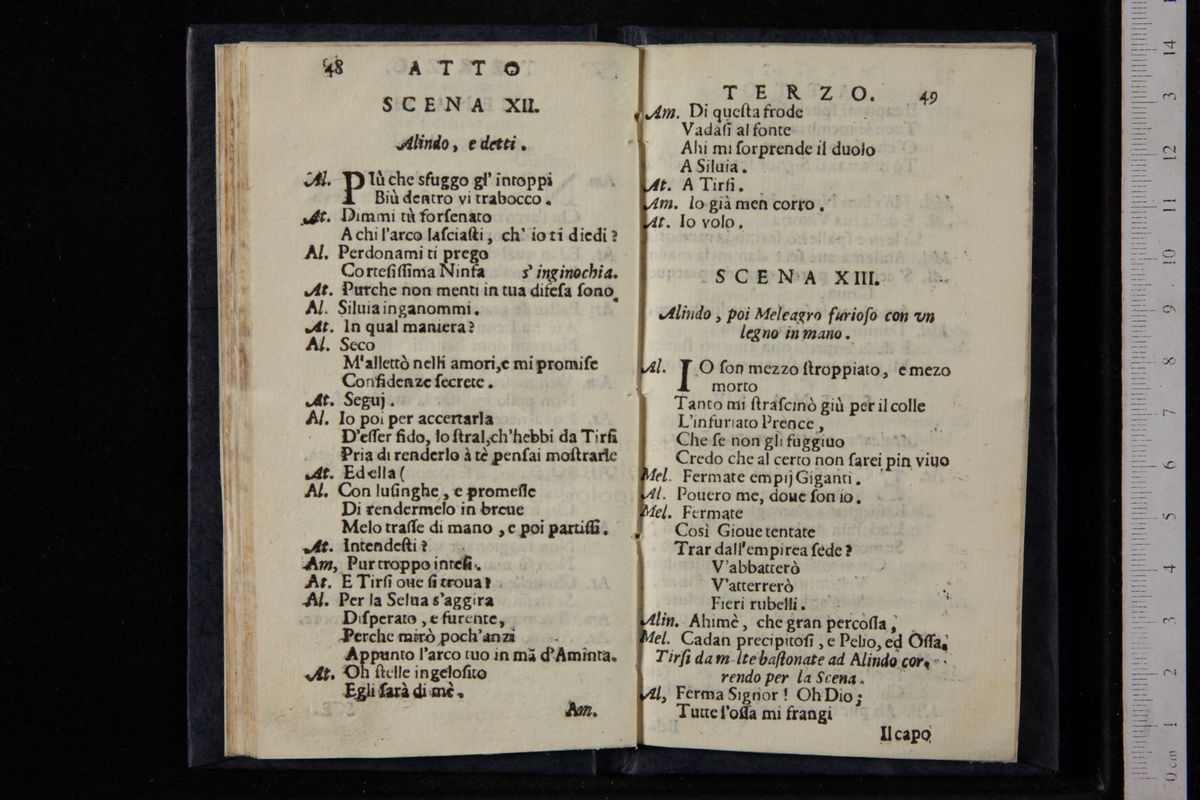 48 ATTO
SCENA XII.
Alindo, e detti.
Al. PIù che sfuggo gl' intoppi
Biù dentro vi trabocco.
At. Dimmi tù forſenato
A chi l'arco laſciaſti, ch' io ti diedi?
Al. Perdonami ti prego
Corteſiſſima Ninfa s' inginochia.
At. Purche non menti in tua difeſa ſono.
Al. Siluia ingannommi.
At. In qual maniera?
Al. Seco
M'allettò nelli amori, e mi promiſe
Confidenze ſecrete.
At. Seguj.
Al. Io poi per accertarla
D'eſſer fido, lo ſtral, ch'hebbi da Tirſi
Pria di renderlo à tè penſai moſtrarle
At. Ed ella (
Al. Con luſinghe, e promeſſe
Di rendermelo in breue
Melo traſſe di mano, e poi partiſſi.
At. Intendeſti?
Am, Pur troppo inteſi.
At. E Tirſi oue ſi troua?
Al. Per la Selua s'aggira
Diſperato, e furente,
Perche mirò poch'anzi
Appunto l'arco tuo in mã d'Aminta.
At. Oh ſtelle ingeloſito
Egli ſarà di mè.
Am.
TERZO. 49
Am. Di queſta frode
Vadaſi al fonte
Ahi mi ſorprende il duolo
A Siluia.
At. A Tirſi.
Am. Io già men corro.
At. Io volo.
SCENA XIII.
Alindo, poi Meleagro furioſo con vn
legno in mano.
Al. IO ſon mezzo ſtroppiato, e mezo
morto
Tanto mi ſtraſcinò giù per il colle
L'infuriato Prence,
Che ſe non gli fuggiuo
Credo che al certo non ſarei pin viuo
Mel. Fermate empij Giganti.
Al. Pouero me, doue ſon io.
Mel. Fermate
Così Gioue tentate
Trar dall'empirea ſede?
V'abbatterò
V'atterrerò
Fieri rubelli.
Alin. Ahimè, che gran percoſſa,
Mel. Cadan precipitoſi, e Pelio, ed Oſſa.
Tirſi da m lte baſtonate ad Alindo cor-
rendo per la Scena.
Al, Ferma Signor! Oh Dio;
Tutte l'oſſa mi frangi
Il capo